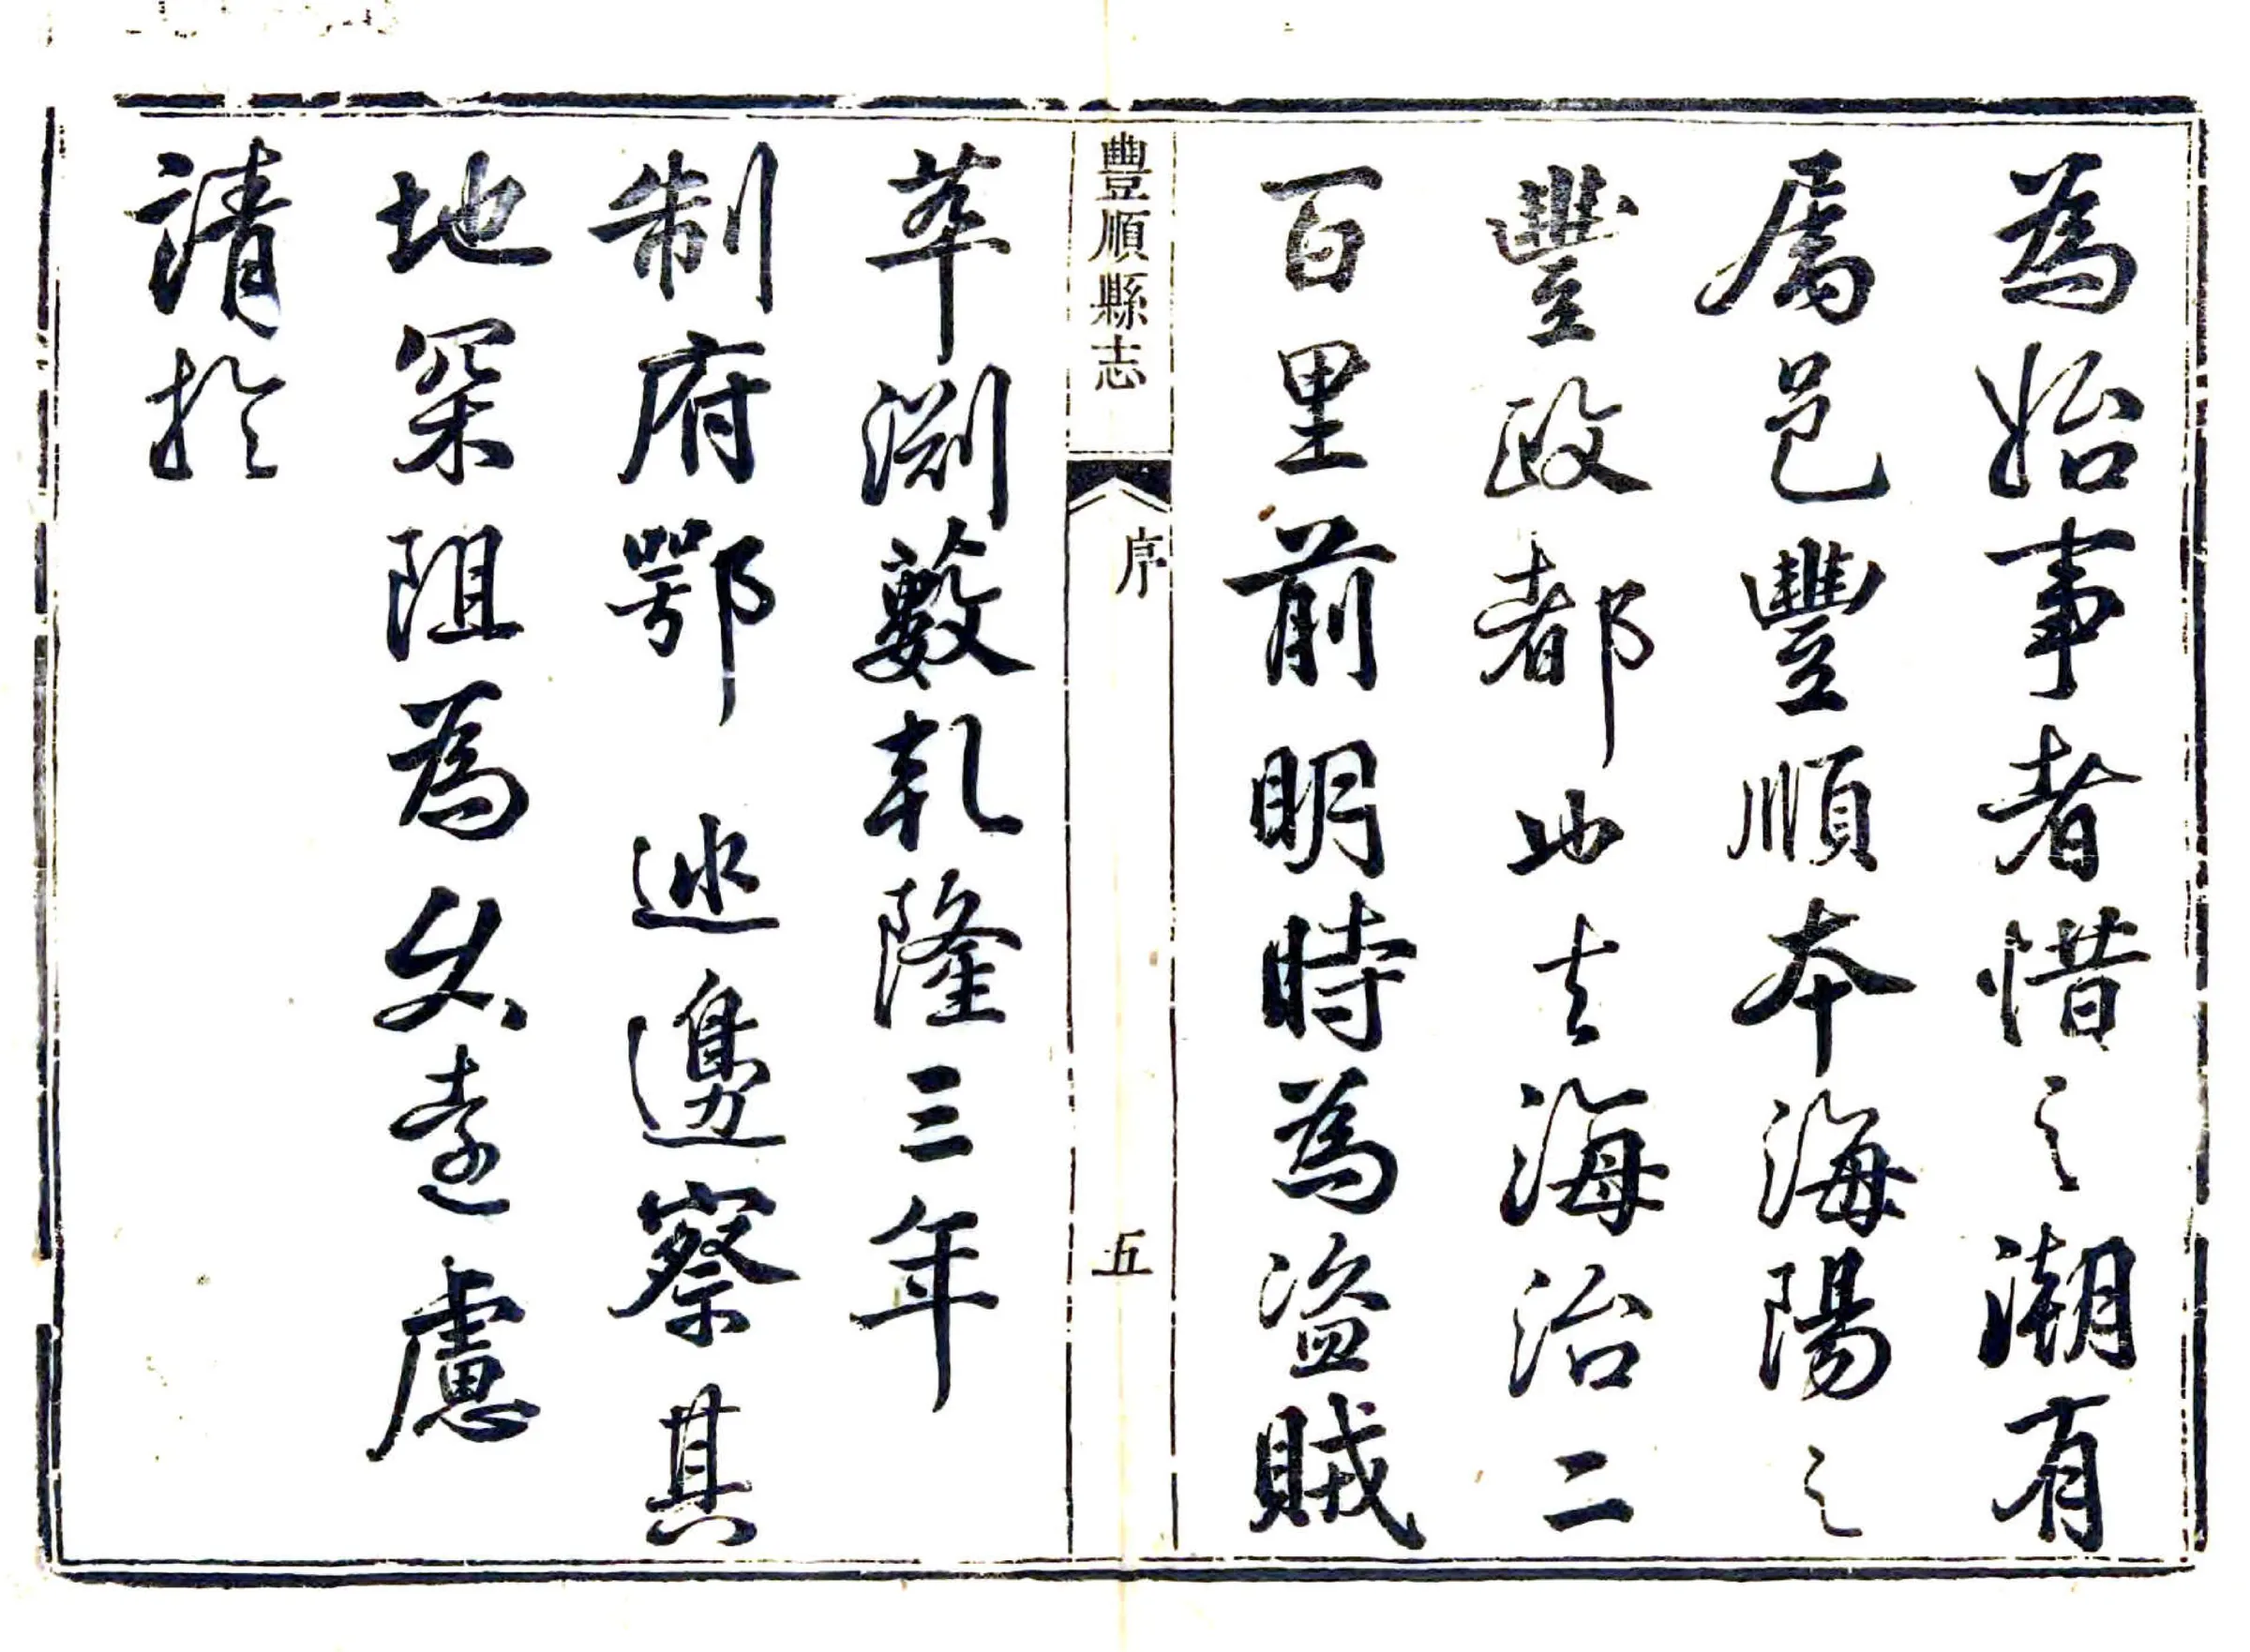 為始事者惜之潮有
屬邑豐順本海陽之
豐政都地去海治二
百里前明時為盗賊
豐順縣志
序
五
萃淵藪乹隆三年
制府鄂 巡邊察其
地罙阻為久遠慮
請於